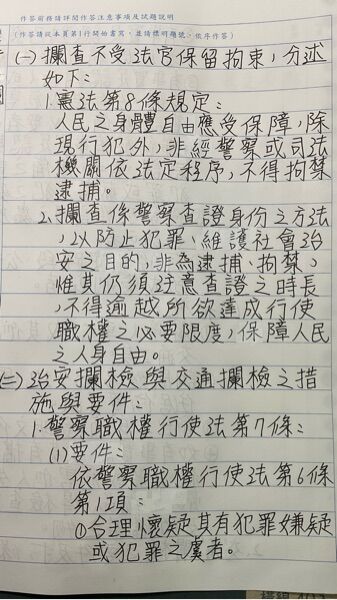 作答前務請詳閱作答注意事項及試題說明
(作答請從本頁第1行開始書寫,並請標明題號,依序作答)
(一)攔查不受法官保留拘束,分述
如下:
1.憲法第8條規定:
人民之身體自由應受保障,除
現行犯外,非經警察或司法
機關依法定程序,不得拘禁
逮捕。
2.攔查係警察查證身份之方法
,以防止犯罪、維護社會治
安之目的,非為逮捕、拘禁,
惟其仍須注意查證之時長
,不得逾越所欲達成行使
職權之必要限度,保障人民
之人身自由。
(二)治安攔檢與交通攔檢之措
施與要件:
1.警察職權行使法第7條:
(1)要件:
依警察職權行使法第6條
第1項:
①合理懷疑其有犯罪嫌疑
或犯罪之虞者。